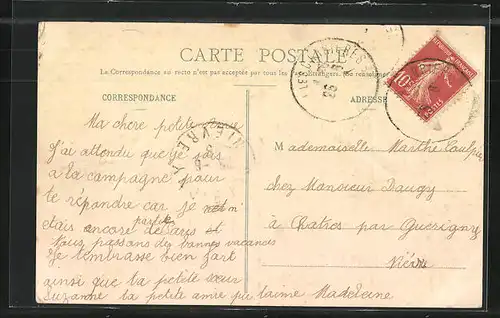 CARTE POSTALE
La Correspondance au recto n'est pas acceptée par tous les pays étrangers. Se renseigner
CORRESPONDANCE
ADRESSE
Ma chere petite amie
J'ai attendu que je sois
a la campagne pour
te répondre car je
etais encore
Nous passons des bonnes vacances
Je t'embrasse bien fort
ainsi que ta petite sœur
Suzanne ta petite amie qui t'aime Madeleine
Mademoiselle Marthe
chez Monsieur Daugy
à Chatres par Guerigny
Nièvre
NIEVRE
10c
POSTES